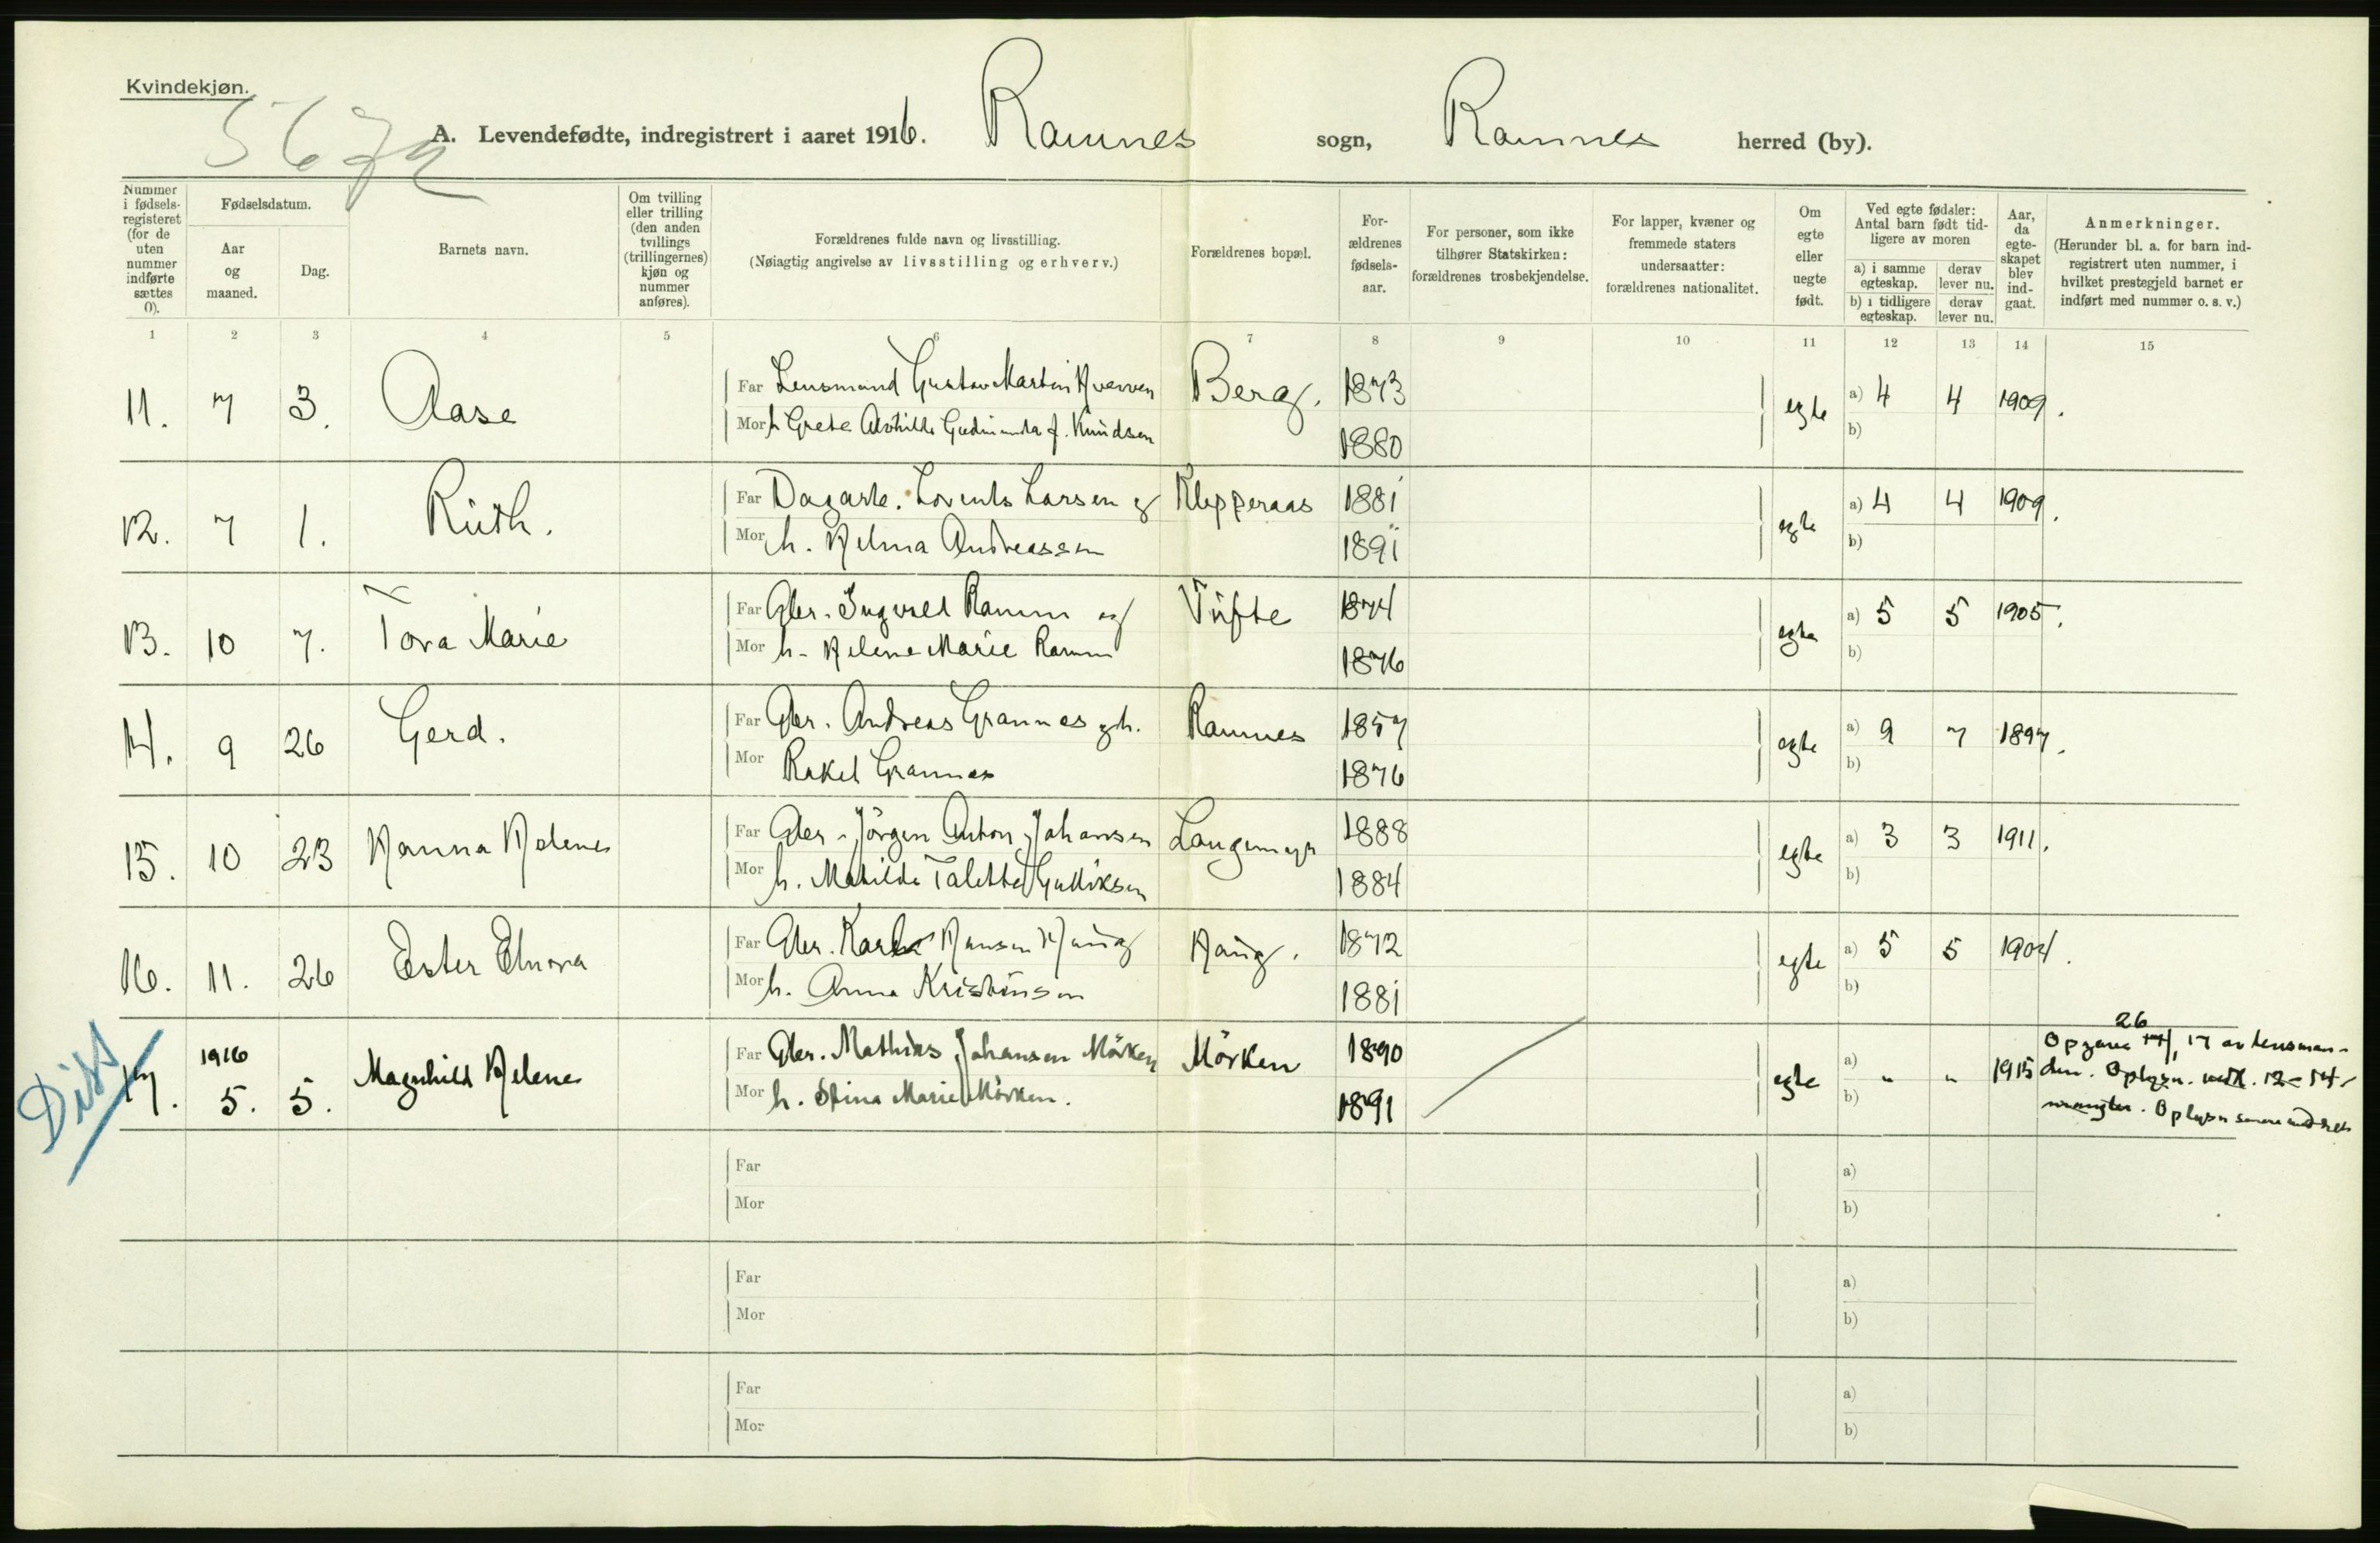 Kvindekjøn.
5672
A. Levendefødte, indregistrert i aaret 1916. Ramnes sogn, Ramnes herred (by).
Nummer i fødsels-registeret (for de uten nummer indførte sættes 0).
Fødselsdatum.
Aar og maaned.
Dag.
Barnets navn.
Om tvilling eller trilling (den anden tvillings (trillingernes) kjøn og nummer anføres).
Forældrenes fulde navn og livsstilling.
(Nøiagtig angivelse av livsstilling og erhverv.)
Forældrenes bopæl.
For-ældrenes fødsels-aar.
For personer, som ikke tilhører Statskirken: forældrenes trosbekjendelse.
For lapper, kvæner og fremmede staters undersaatter: forældrenes nationalitet.
Om egte eller uegte født.
Ved egte fødsler: Antal barn født tid-ligere av moren
a) i samme egteskap.
derav lever nu.
b) i tidligere egteskap.
derav lever nu.
Aar, da egte-skapet blev ind-gaat.
Anmerkninger.
(Herunder bl. a. for barn ind-registrert uten nummer, i hvilket prestegjeld barnet er indført med nummer o. s. v.)
1 2 3 4 5 6 7 8 9 10 11 12 13 14 15
11. 7 3. Aase Far Lensmand Gustav Martin Hverven Berg. 1873 egte a) 4 4 1909.
Mor h Grete Alvhilde Gudmunda f. Knudsen 1880 b)
12. 7 1. Ruth. Far Dagarb. Lorents Larsen og Klepperaas 1881 egte a) 4 4 1909.
Mor h. Helma Andreassen 1891 b)
13. 10 7. Tora Marie Far Gbr. Ingvald Ramm og Tufte 1874 egte a) 5 5 1905.
Mor h. Helene Marie Ramm 1876 b)
14. 9 26 Gerd. Far Gbr. Andreas Grannes og h. Ramnes 1857 egte a) 9 7 1897.
Mor Rakel Grannes 1876 b)
15. 10 23 Hanna Helene Far Gbr. Jörgen Anton Johansen Langemyr 1888 egte a) 3 3 1911.
Mor h. Mathilde Talette Gulliksen 1884 b)
16. 11. 26 Ester Elnora Far Gbr. Karl Hansen Haug Haug. 1872 egte a) 5 5 1904.
Mor h. Anna Kristinsen 1881 b)
Diss 17. 1916 5. 5. Magnhild Helene Far Gbr. Mathias Johansen Mörken Mörken 1890 egte a) " " 1915
Mor h. Stina Marie Mörken. 1891 b)
26
Opgave 17 av lensman-
den. Oplysn. vedk. 12-14
mangler. Oplysn senere indhet
Far a)
Mor b)
Far a)
Mor b)
Far a)
Mor b)